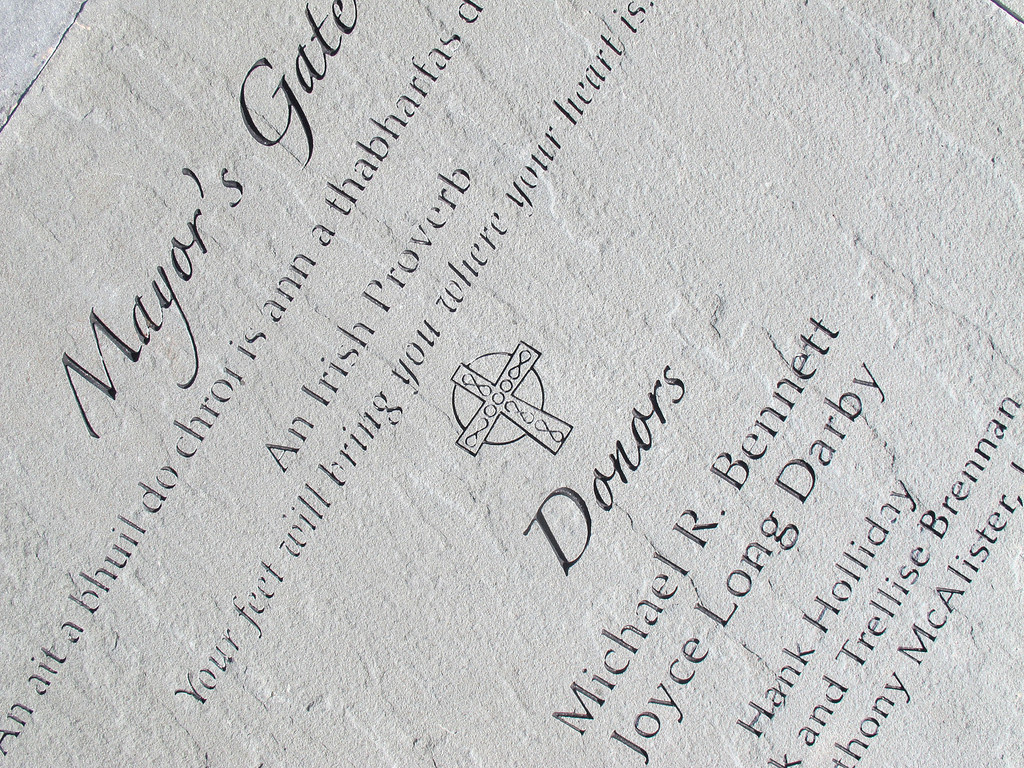 Mayor's Gate
An ait a bhuil do chroi is ann a thabharfas
An Irish Proverb
Your feet will bring you where your heart is.
Donors
Michael R. Bennett
Joyce Long Darby
Hank Holliday
and Trellise Brennan
McAlister,